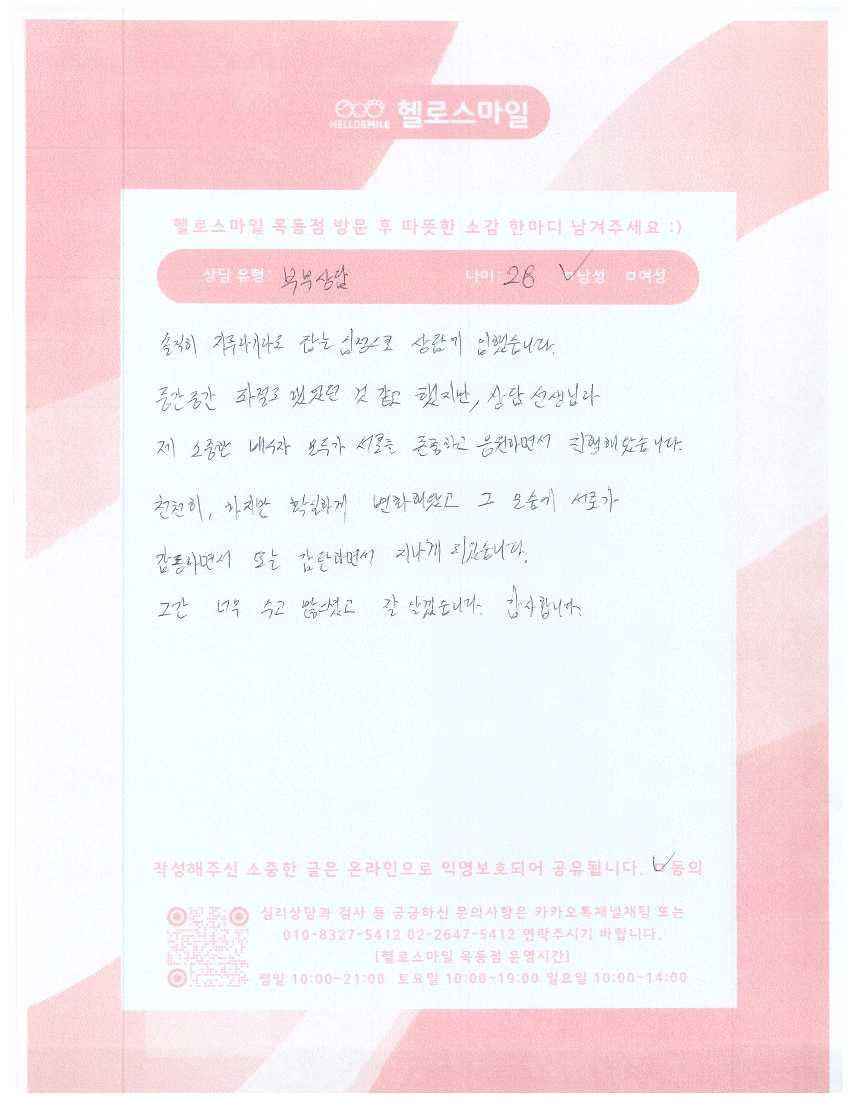 HELLOSMILE 헬로스마일
헬로스마일 목동점 방문 후 따뜻한 소감 한마디 남겨주세요 :)
상담 유형: 부부상담 나이: 28 ☑남성 □여성
솔직히 지푸라기라도 잡는 심정으로 상담에 임했습니다.
중간중간 좌절도 했었던 것 같고 했지만, 상담 선생님과
제 소중한 배우자 모두가 서로를 존중하고 응원하면서 진행해왔습니다.
천천히, 하지만 확실하게 변화되었고 그 모습에 서로가
감동하면서 또는 감탄하면서 지나게 되었습니다.
그간 너무 수고 많으셨고 잘 살겠습니다. 감사합니다.
작성해주신 소중한 글은 온라인으로 익명보호되어 공유됩니다. ☑동의
심리상담과 검사 등 궁금하신 문의사항은 카카오톡채널채팅 또는
010-8327-5412 02-2647-5412 연락주시기 바랍니다.
[헬로스마일 목동점 운영시간]
평일 10:00~21:00 토요일 10:00~19:00 일요일 10:00~14:00